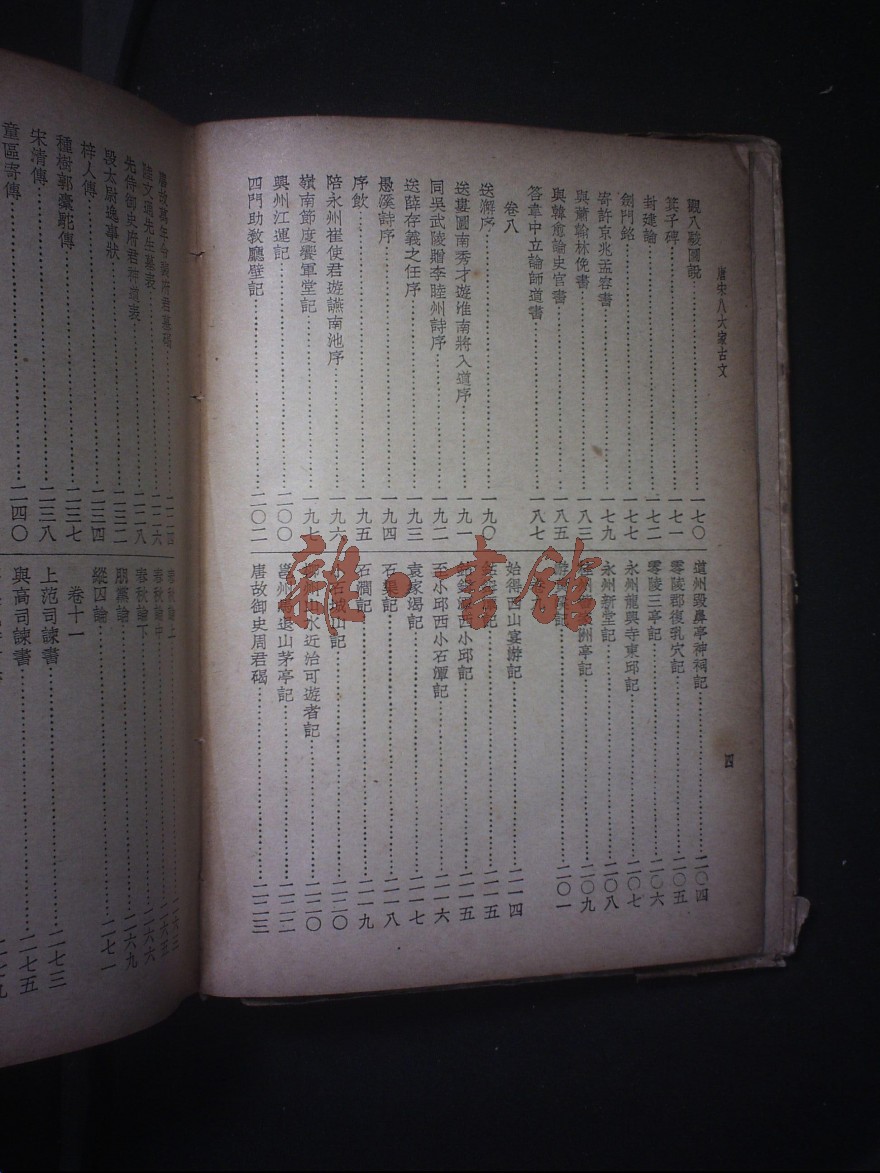 唐宋八大家古文
四
觀八駿圖說……一七〇
箕子碑……一七一
封建論……一七二
劍門銘……一七七
寄許京兆孟容書……一七九
與蕭翰林俛書……一八三
與韓愈論史官書……一八五
答韋中立論師道書……一八七
卷八
送澥序……一九〇
送婁圖南秀才遊淮南將入道序……一九一
同吳武陵贈李睦州詩序……一九二
送薛存義之任序……一九三
愚溪詩序……一九四
序飲……一九五
陪永州崔使君遊讌南池序……一九六
嶺南節度饗軍堂記……一九七
興州江運記……二〇〇
四門助教廳壁記……二〇二
道州毀鼻亭神祠記……二〇四
零陵郡復乳穴記……二〇五
零陵三亭記……二〇六
永州龍興寺東邱記……二〇七
永州新堂記……二〇八
洲亭記……二〇九
記……二〇一
始得西山宴游記……二一四
記……二一五
潭西小邱記……二一五
至小邱西小石潭記……二一六
袁家渴記……二一七
石渠記……二一八
石澗記……二一九
小石城山記……二二〇
山水近治可遊者記……二二〇
邕州馬退山茅亭記……二二二
唐故御史周君碣……二二三
陸文通先生墓表……二二六
先侍御史府君神道表……二二八
段太尉逸事狀……二三二
梓人傳……二三四
種樹郭橐駝傳……二三七
宋清傳……二三八
童區寄傳……二四〇
春秋論上
春秋論中……二六五
春秋論下……二六六
朋黨論……二六九
縱囚論……二七一
卷十一
上范司諫書……二七三
與高司諫書……二七五
雜·書館